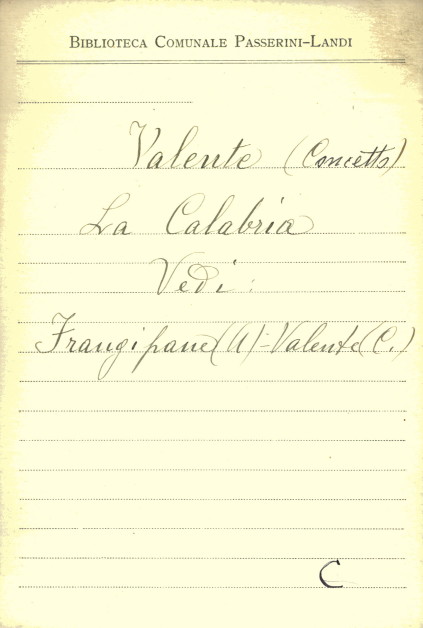 BIBLIOTECA COMUNALE PASSERINI-LANDI
Valente (Concetto)
La Calabria
Vedi:
Frangipane (A)-Valente (C.)
C